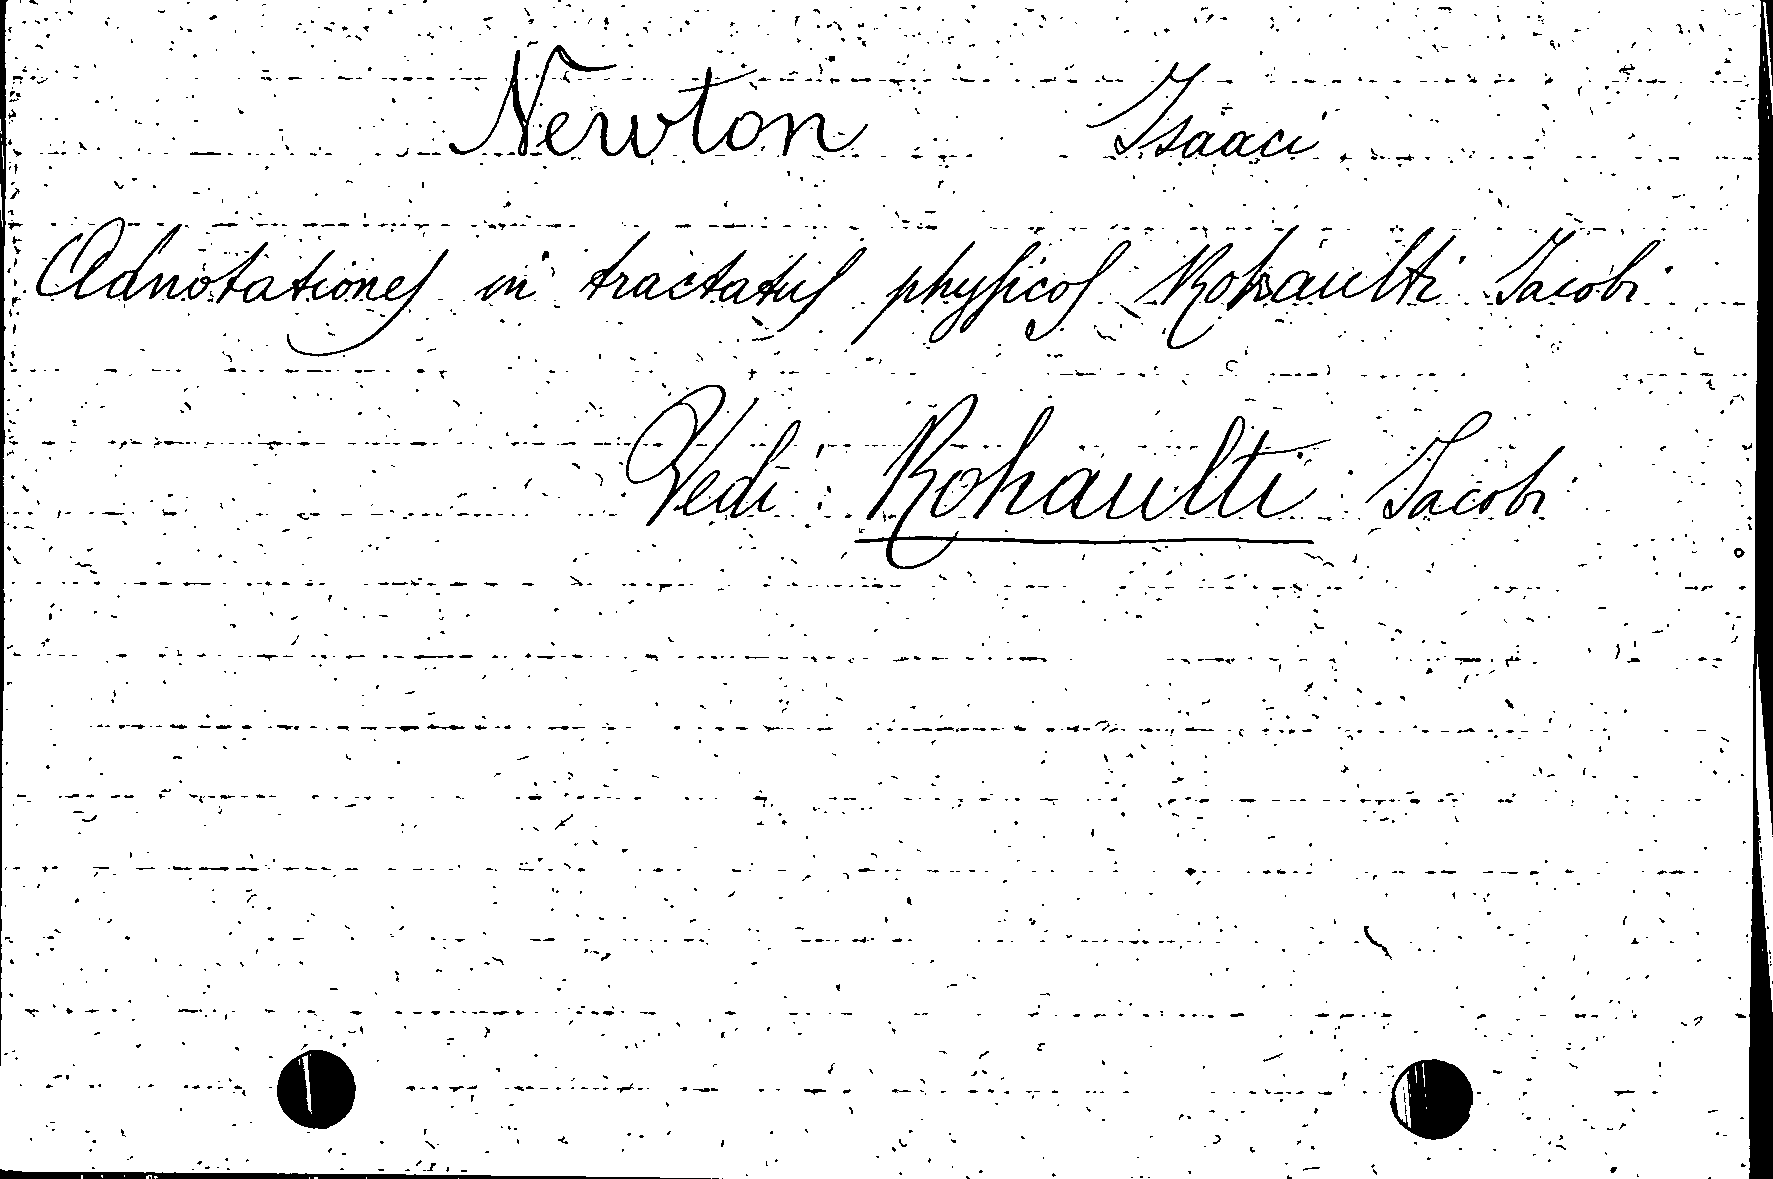 Newton Isaaci
Adnotationes in tractatus physicos Rohaulti Jacobi
Vedi: Rohaulti Jacobi